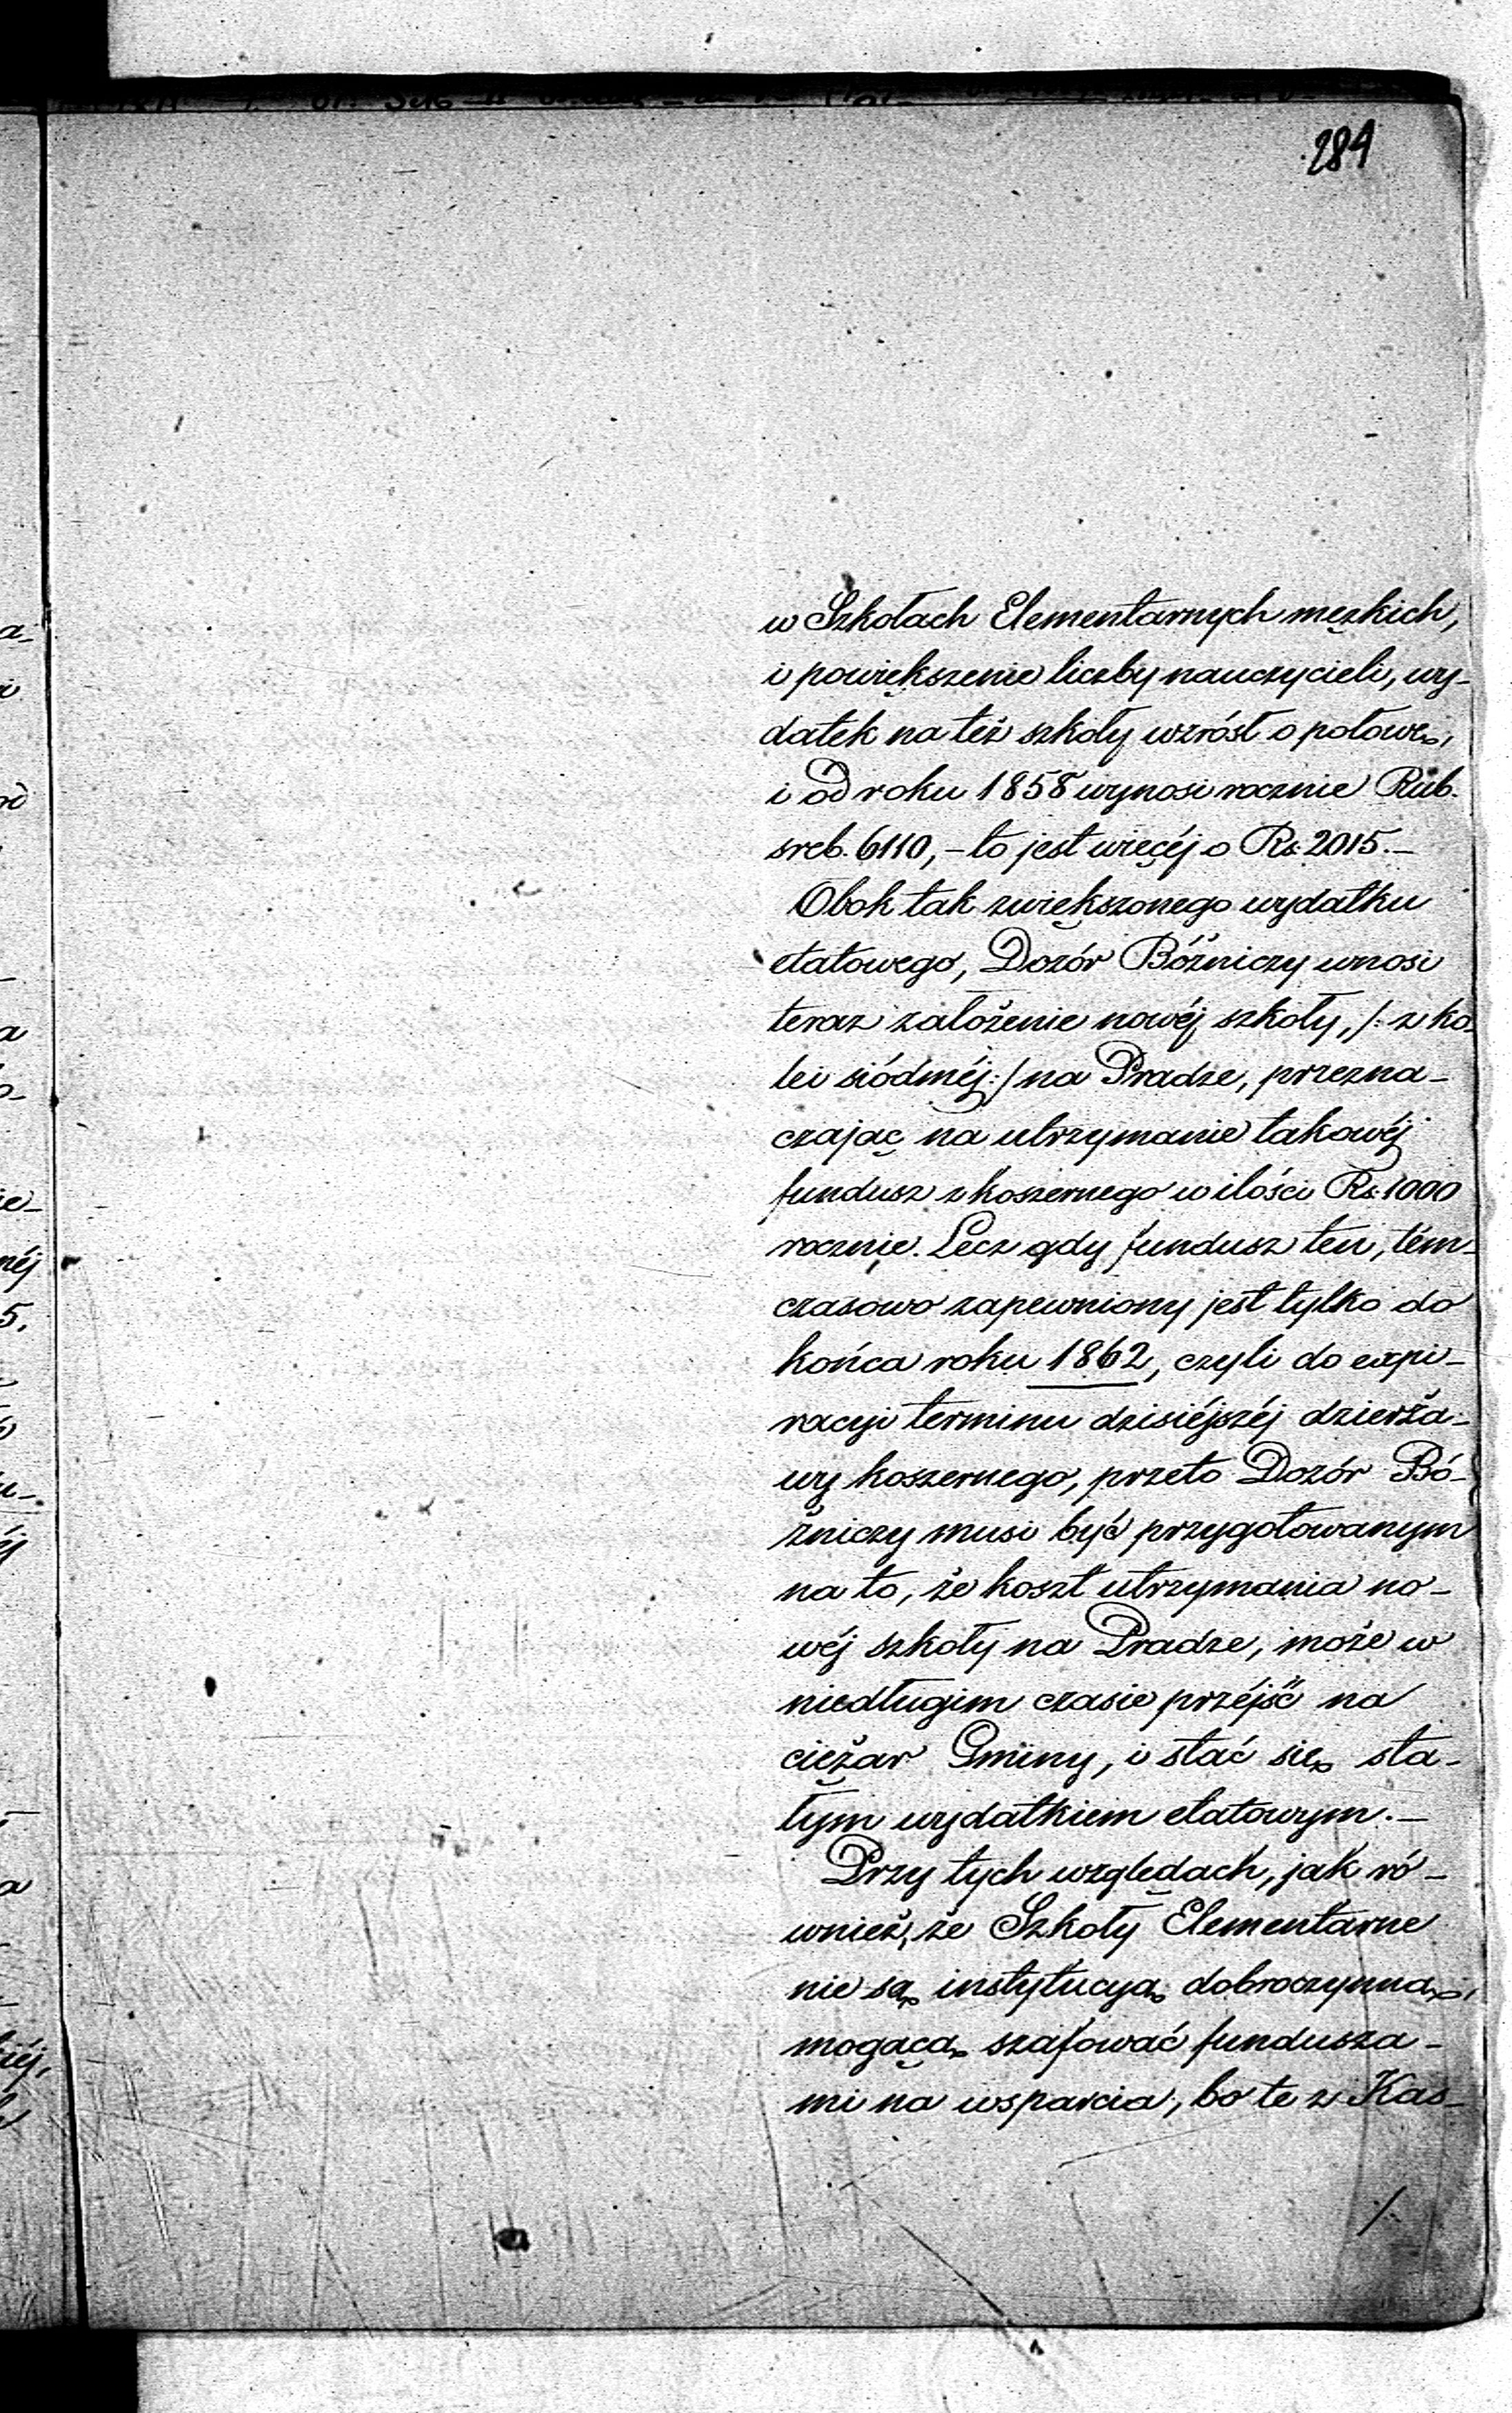 284
w Szkołach Elementarnych męzkich,
i powiększenie liczby nauczycieli, wy-
datek na też szkoły wzrósł o połowę,
i od roku 1858 wynosi rocznie Rub.
sreb. 6110, - to jest więcéj o Rs. 2015. -
Obok tak zwiększonego wydatku
etatowego, Dozór Bóźniczy wnosi
teraz założenie nowéj szkoły, /: z ko-
lei siódméj :/ na Pradze, przezna-
czając na utrzymanie takowéj
fundusz z koszernego w ilości Rs. 1000
rocznie. Lecz gdy fundusz ten, tém-
czasowo zapewniony jest tylko do
końca roku 1862, czyli do expi-
racyi terminu dzisiéjszéj dzierża-
wy koszernego, przeto Dozór Bó-
żniczy musi być przygotowanym
na to, że koszt utrzymania no-
wéj szkoły na Pradze, może w
niedługim czasie przéjść na
ciężar Gminy, i stać się sta-
łym wydatkiem etatowym. -
Przy tych względach, jak ró-
wnież, że Szkoły Elementarne
nie są instytucyą dobroczynną,
mogącą szafować fundusza-
mi na wsparcia, bo te z Kas-
/.